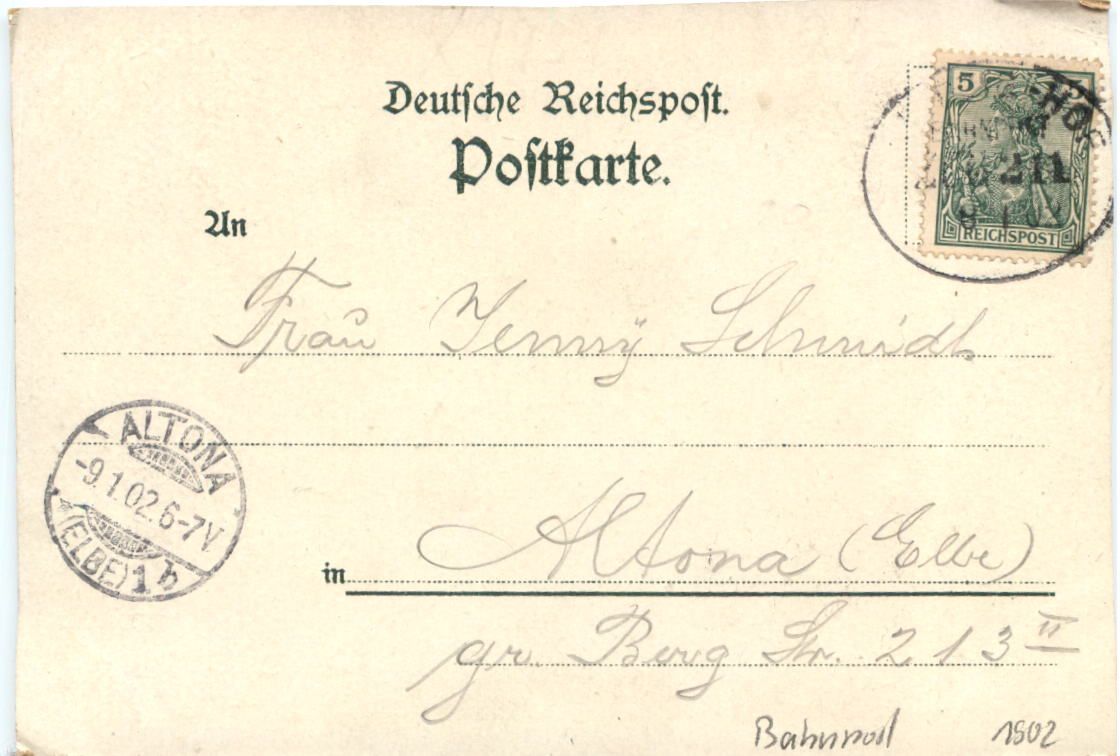 Deutsche Reichspost.
Postkarte.
5
REICHSPOST
An
Frau Jenny Schmidt
ALTONA
-9.1.02.6-7V.
(ELBE) 1 b
in Altona (Elbe)
gr. Berg Str. 213 II
Bahnpost 1902